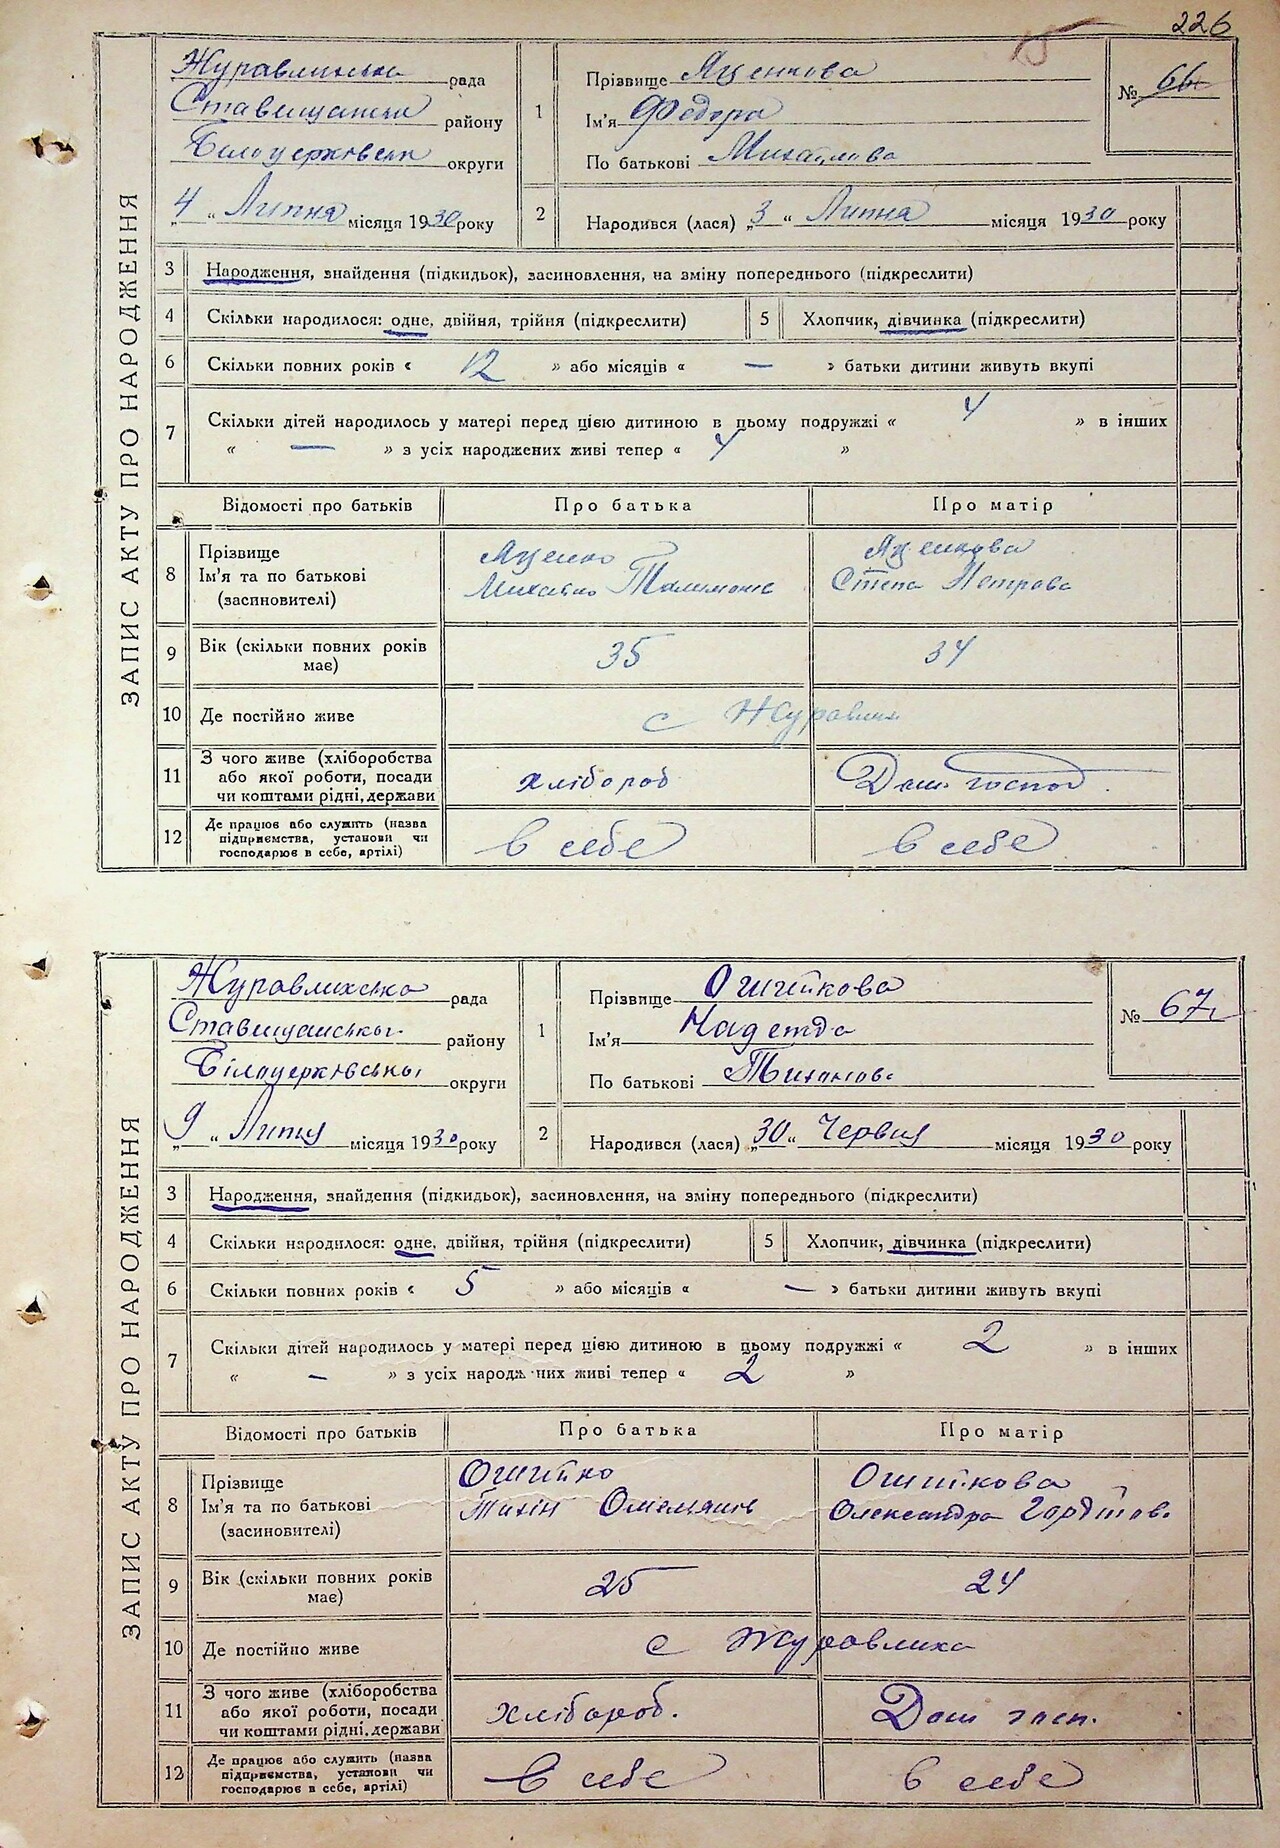 226
15
ЗАПИС АКТУ ПРО НАРОДЖЕННЯ
Журавлинська рада
Ставищанськ району
Білоцерківськ округи
„4“ Липня місяця 1930 року
1 Прізвище Яценкова
Ім'я Федора
По батькові Михайлова
№ 66
2 Народився (лася) „3“ Липня місяця 1930 року
3 Народження, знайдення (підкидьок), засиновлення, на зміну попереднього (підкреслити)
4 Скільки народилося: одне, двійня, трійня (підкреслити) 5 Хлопчик, дівчинка (підкреслити)
6 Скільки повних років « 12 » або місяців « — » батьки дитини живуть вкупі
7 Скільки дітей народилось у матері перед цією дитиною в цьому подружжі « 4 » в інших
« — » з усіх народжених живі тепер « 4 »
Відомості про батьків Про батька Про матір
8 Прізвище
Ім'я та по батькові
(засиновителі)
Яценко
Михайло
Яценкова
Степа Петрова
9 Вік (скільки повних років
має)
35 34
10 Де постійно живе с Журавлих
11 З чого живе (хліборобства
або якої роботи, посади
чи коштами рідні, держави
хлібороб Дом. господ.
12 Де працює або служить (назва
підприємства, установи чи
господарює в себе, артілі)
в себе в себе
ЗАПИС АКТУ ПРО НАРОДЖЕННЯ
Журавлихська рада
Ставищанської району
Білоцерківської округи
„9“ Липня місяця 1930 року
1 Прізвище Ошийкова
Ім'я Надежда
По батькові Тихонова
№ 67
2 Народився (лася) „30“ Червня місяця 1930 року
3 Народження, знайдення (підкидьок), засиновлення, на зміну попереднього (підкреслити)
4 Скільки народилося: одне, двійня, трійня (підкреслити) 5 Хлопчик, дівчинка (підкреслити)
6 Скільки повних років « 5 » або місяців « — » батьки дитини живуть вкупі
7 Скільки дітей народилось у матері перед цією дитиною в цьому подружжі « 2 » в інших
« — » з усіх народж них живі тепер « 2 »
Відомості про батьків Про батька Про матір
8 Прізвище
Ім'я та по батькові
(засиновителі)
Ошийко
Тихін
Ошийкова
Олександра
9 Вік (скільки повних років
має)
25 24
10 Де постійно живе с Журавлиха
11 З чого живе (хліборобства
або якої роботи, посади
чи коштами рідні, держави
хлібороб. Дом госп.
12 Де працює або служить (назва
підприємства, установи чи
господарює в себе, артілі)
в себе в себе